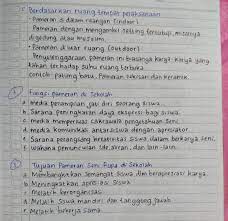 c. Berdasarkan ruang tempat pelaksanaan
- Pameran di dalam ruangan (indoor)
Pameran dengan mengambil setting tertutup, misalnya
di gedung atau museum.
- Pameran di luar ruang (outdoor)
Penyelenggaraan pameran ini biasanya karya-karya yang
tahan terhadap suhu ruang terbuka
contoh: patung batu, pameran lukisan dan keramik.
① Fungsi pameran di Sekolah
a. Media penampilan jati diri seorang siswa.
b. Sarana peningkatan daya ekspresi bagi siswa.
c. Media memperluas cakrawala pengetahuan seni.
d. Media komunikasi antarsiswa dengan apresiator
e. Sarana perangsang kreativitas siswa dalam berkarya seni.
f. Wahana pemunculan ide, aliran, dan lain-lain.
② Tujuan Pameran Seni Rupa di Sekolah
a. Membangkitkan semangat siswa dlm berapresiasi, karya
b. Meningkatkan apresiasi siswa
c. Melatih berorganisasi
d. Melatih siswa mandiri dan tanggung jawab
e. Melatih bekerja sama